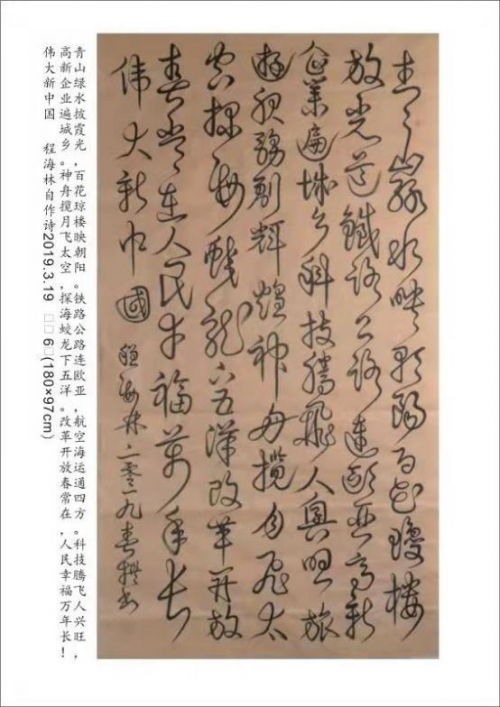 青山綠水映朝陽百花瓊樓
放光芒鐵路公路連歐亞高新
企業遍城乡科技騰飛人興旺旅
游服務創輝煌神舟攬月飛太
空探海蛟龍下五洋改革开放
春常在人民幸福萬年長
伟大新中國 程海林二零一九春撰书
青山绿水披霞光,百花琼楼映朝阳。铁路公路连欧亚,航空海运通四方。科技腾飞人兴旺,
高新企业遍城乡。神舟揽月飞太空,探海蛟龙下五洋。改革开放春常在,人民幸福万年长!
伟大新中国 程海林自作诗2019.3.19 □□6□(180×97cm)